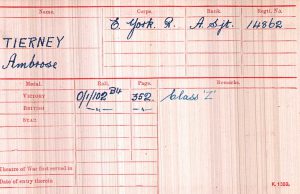 Name. Corps. Rank. Regtl. No.
TIERNEY E. York. R. A. Sjt. 14862
Ambrose
Medal. Roll. Page. Remarks.
VICTORY 0/1/102 B4 352. Class "Z"
BRITISH -"- -"-
STAR
Theatre of War first served in
Date of entry therein
K. 1380.